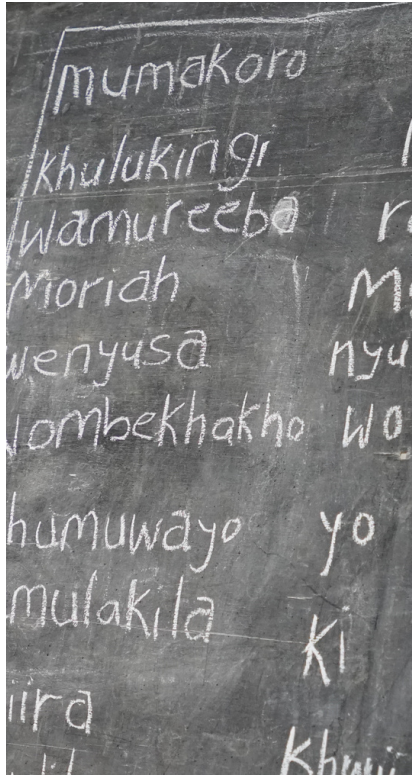 mumakoro
khulukingi
wamureeba r
Moriah M
wenyusa nyu
Wombekhakho Wo
humuwayo yo
mulakila Ki
iira
Khwii